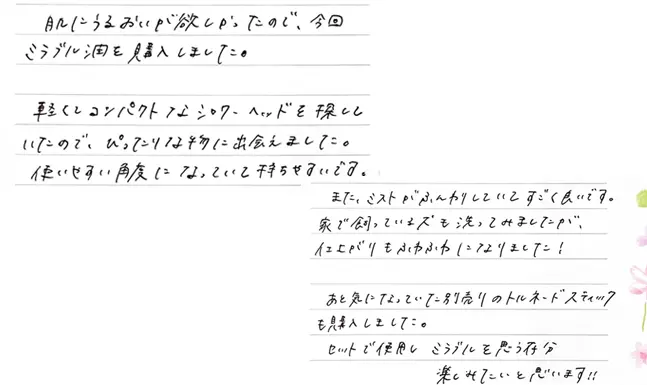 肌にうるおいが欲しかったので、今回
ミラブル潤を購入しました。
軽くてコンパクトなシャワーヘッドを探して
いたので、ぴったりな物に出会えました。
使いやすい角度になっていて持ちやすいです。
また、ミストがふんわりしていてすごく良いです。
家で飼っている犬も洗ってみましたが、
仕上がりもふわふわになりました!
あと気になっていた別売りのトルネードスティック
も購入しました。
セットで使用しミラブルを思う存分
楽しみたいと思います!!